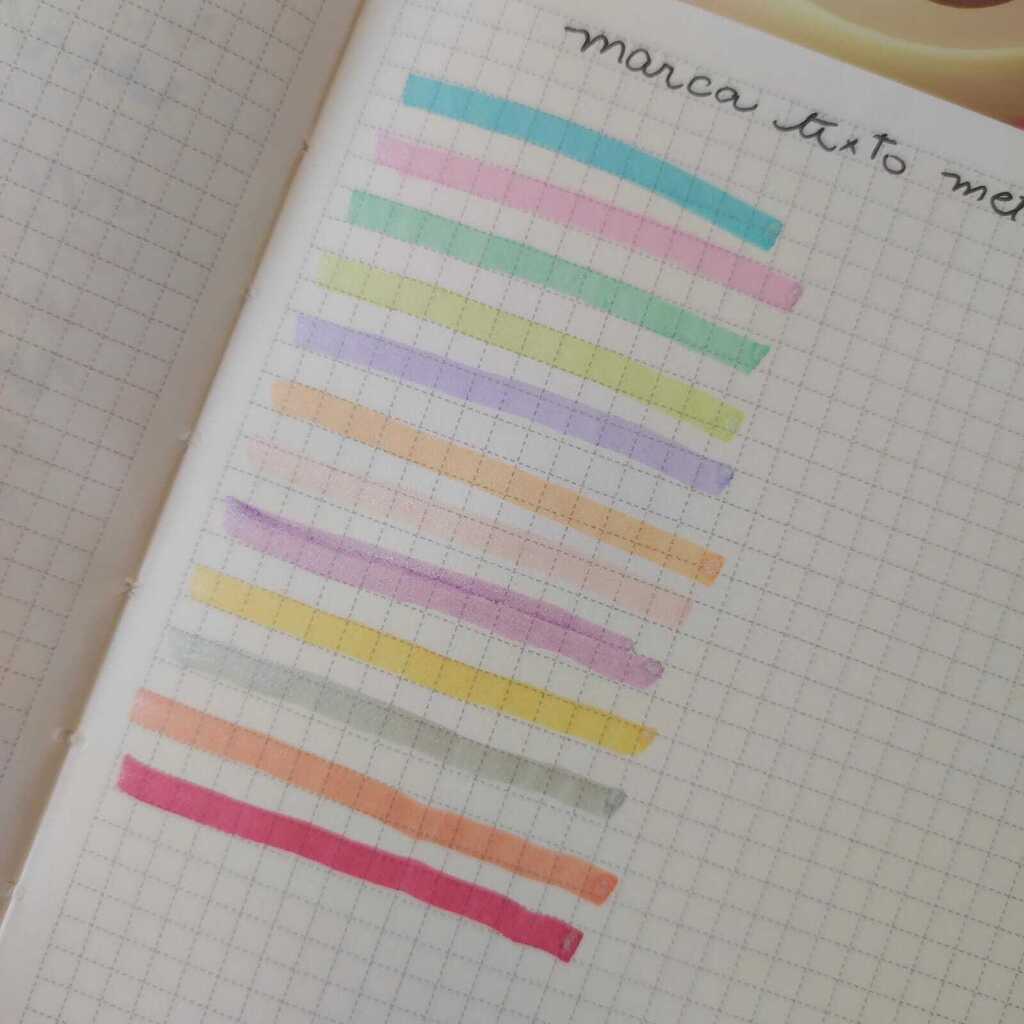 marca texto met